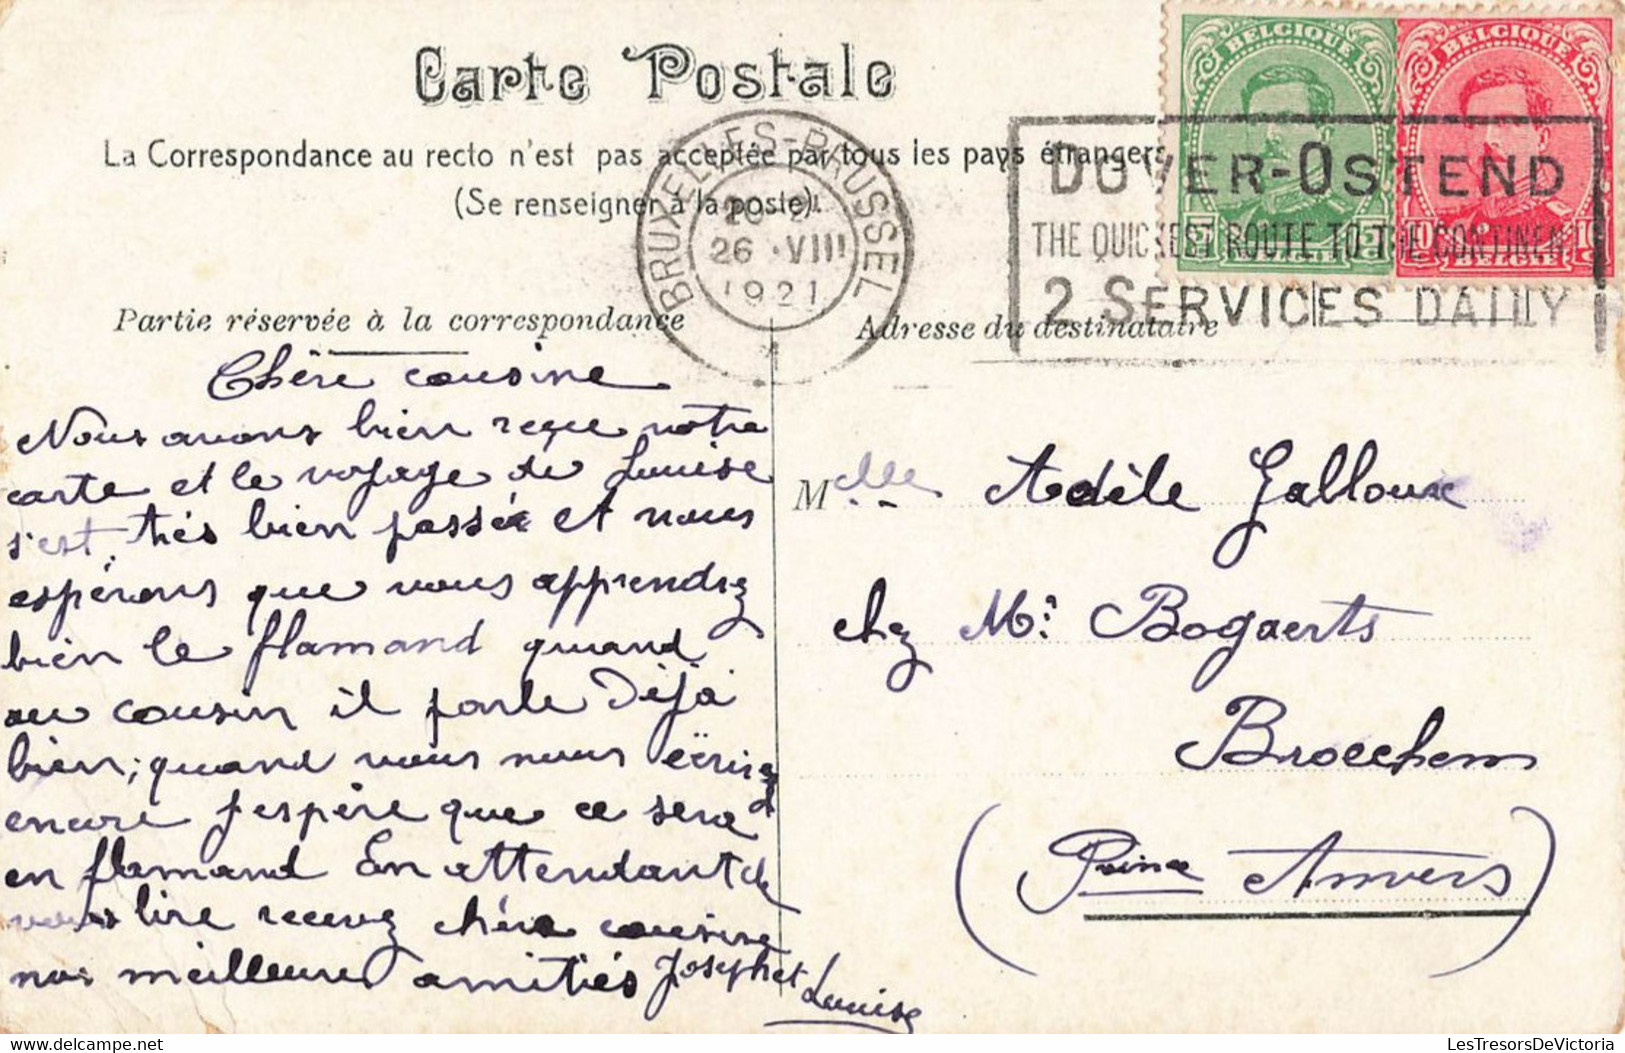 Carte Postale
La Correspondance au recto n'est pas acceptée par tous les pays étrangers
(Se renseigner à la poste).
BRUXELLES-BRUSSEL
26 VIII
1921
BELGIQUE
BELGIQUE
5 5
BELGIË
10 10
BELGIË
DOVER-OSTEND
THE QUICKEST ROUTE TO THE CONTINENT
2 SERVICES DAILY
Partie réservée à la correspondance
Adresse du destinataire
Chère cousine
Nous avons bien reçue votre
carte et le voyage de Louise
s'est très bien passée et nous
espérons que vous apprendrez
bien le flamand quand
au cousin il parle Déjà
bien; quand vous nous écrirez
encore j'espère que ce sera
en flamand En attendant de
vous lire recevez chère cousine
nos meilleures amitiés Joseph et
Louise
Melle Adèle Galloux
chez Mr. Bogaerts
Broechem
(Prince Anvers)
delcampe.net
LesTresorsDeVictoria